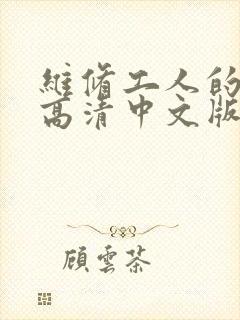 維修工人的
高清中文版
顧雲茶